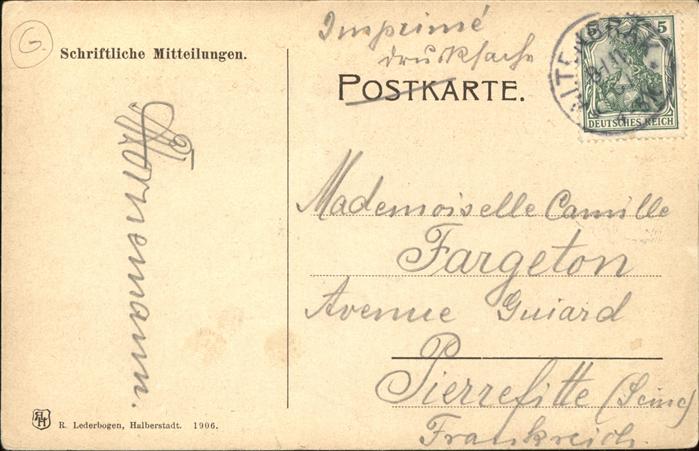 G.
Schriftliche Mitteilungen.
Imprimé
Drucksache
POSTKARTE.
5
DEUTSCHES REICH
Mademoiselle Camille
Fargeton
Avenue Guiard
Pierrefitte (Seine)
Frankreich.
R. Lederbogen, Halberstadt. 1906.